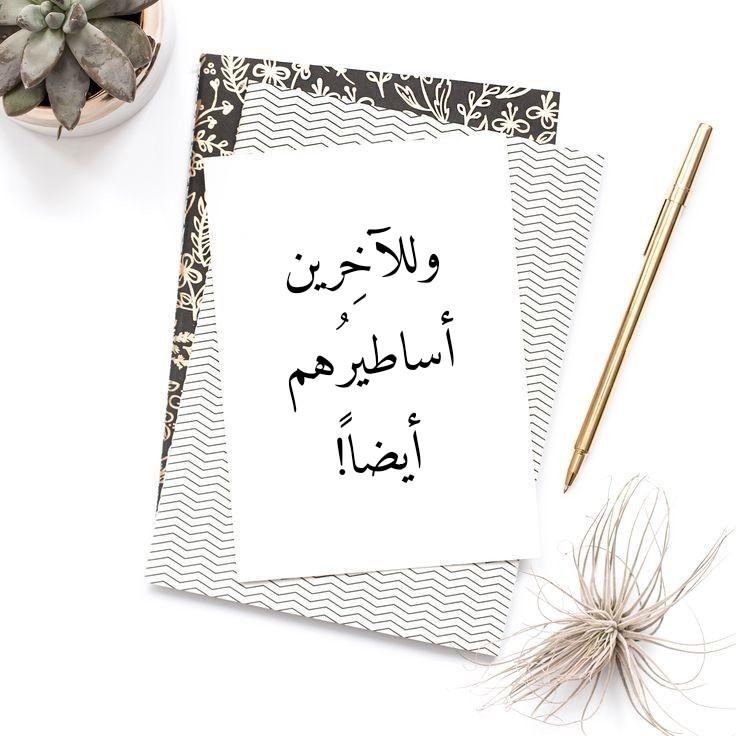 وللآخِرين
أساطيرُهم
أيضاً!